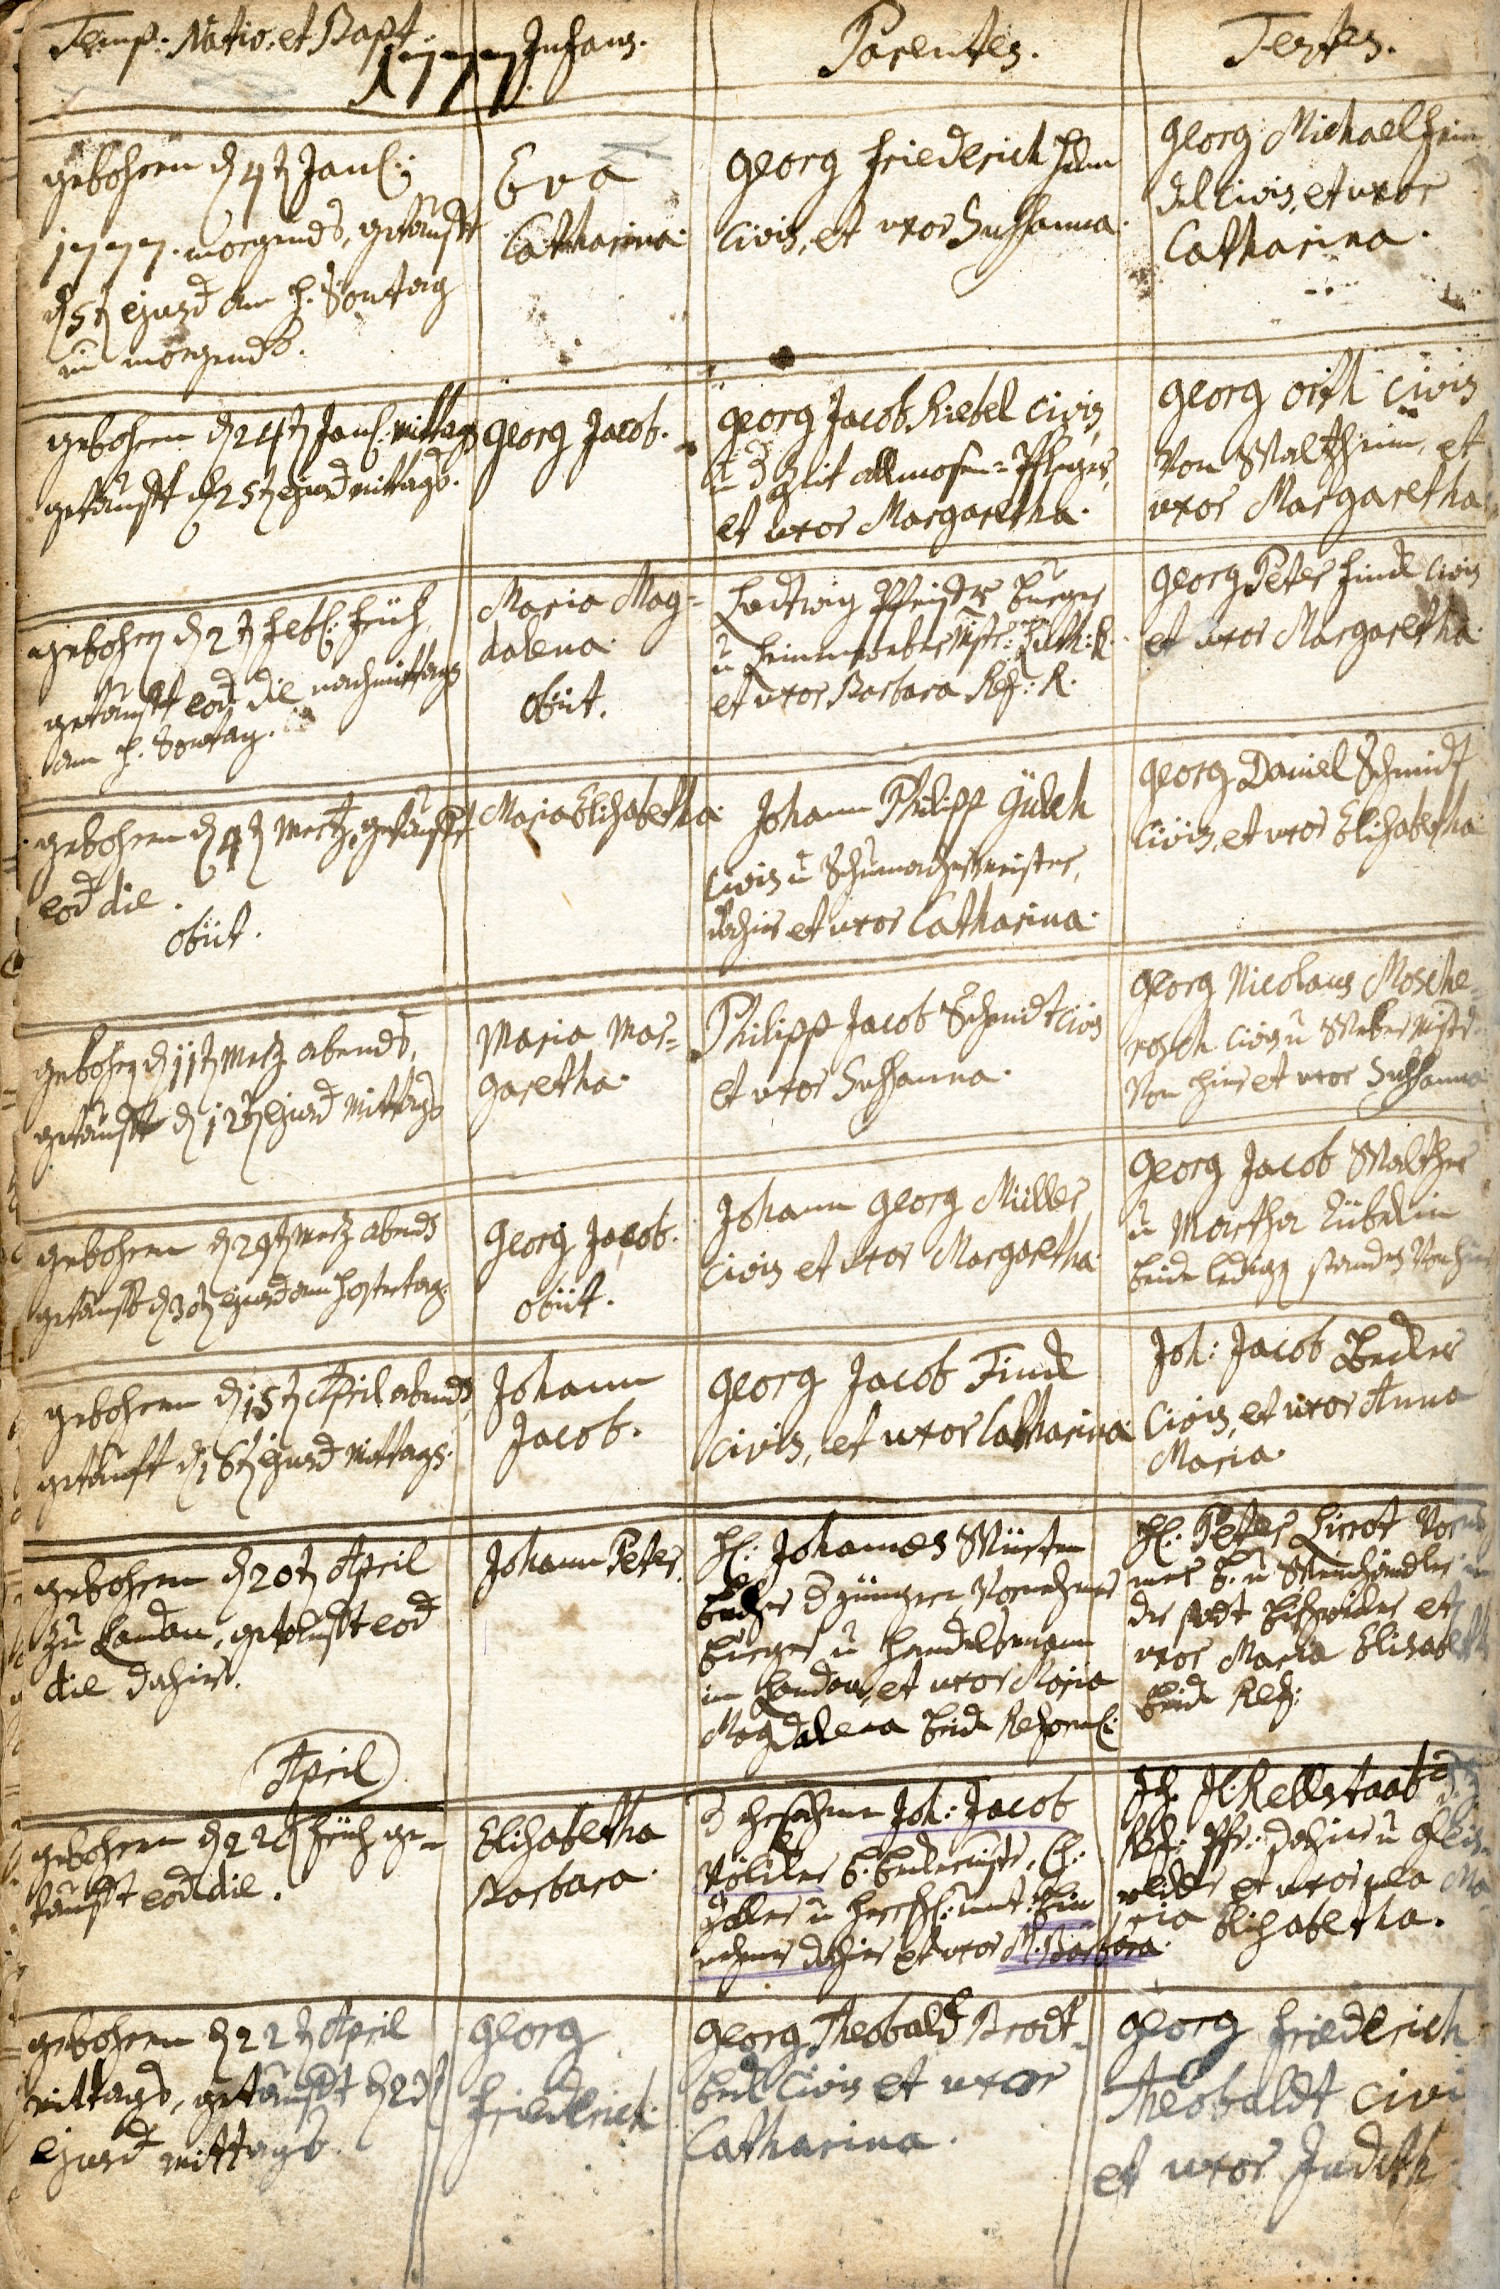 Temp: Nativ: et Bapt: 1777. Infans. Parentes. Testes.
gebohren d 4t Janr:
1777. morgends, getaufft
d 5t ejusd am h. Sontag
morgends.
Eva
Catharina.
Georg Friederich
civis, et uxor Susanna.
Georg Michael Hein
del civis, et uxor
Catharina.
gebohren d 24t Janr: mittags
getaufft d 25t ejusd mittags.
Georg Jacob.
Georg Jacob Kiebel civis,
u d Zeit allmosen=Pfleger,
et uxor Margaretha.
Georg Orth civis
von Waltzheim, et
uxor Margaretha.
gebohren d 2t Febr: früh,
getaufft eod die nachmittags
am h. Sontag.
Maria Mag=
dalena.
obiit.
Ludwig Pfeister burger
u leinenweber Mstr: Luth: R.
et uxor Barbara Ref: R.
Georg Peter Finck civis
et uxor Margaretha.
gebohren d 4t Mertz, getaufft
eod die.
obiit.
Maria Elisabetha.
Johann Philipp Gülch
civis u Schumachermeister,
dahier et uxor Catharina.
Georg Daniel Schmidt
civis, et uxor Elisabetha
gebohren d 11t Mertz abends,
getaufft d 12t ejusd Mittags
Maria Mar=
garetha.
Philipp Jacob Schmidt civis
et uxor Susanna.
Georg Nicolaus Mosche=
rosch civis u Weber Mstr
von hier et uxor Susanna
gebohren d 29t Mertz abends
getaufft d 30t ejusd am h ostertag.
Georg Jacob.
obiit.
Johann Georg Müller,
civis et uxor Margaretha.
Georg Jacob Walther
u Martha Kübelin
beide ledigen standes von hier
gebohren d 15t April abends,
getaufft d 16t ejusd Mittags.
Johann
Jacob.
Georg Jacob Finck
civis, et uxor Catharina.
Joh: Jacob Becker
civis, et uxor Anna
Maria.
gebohren d 20t April
zu Landau, getaufft eod
die dahier.
Johann Peter.
H: Johannes Würten
becher d jüngere vornehmer
burger u handelsmann
in Landau, et uxor Maria
Magdalena beide Reform:
H: Peter Lirrot vorneh
mer b. u Weinhändler in
der stadt et
uxor Maria Elisabeth
beide Ref:
April
gebohren d 22t früh ge=
taufft eod die.
Elisabetha
Barbara.
d Joh: Jacob
Völcker
dahier et uxor M: Barbara.
H. H: Rellstaab
Ref: Pfr: dahier u
et uxor ejus Ma
ria Elisabetha.
gebohren d 22t April
mittags, getaufft d 23t
ejusd mittags.
Georg
Friederich.
Georg Theobald Brodt=
beck civis et uxor
Catharina.
Georg Friederich
Theobaldt civi
et uxor Judith.